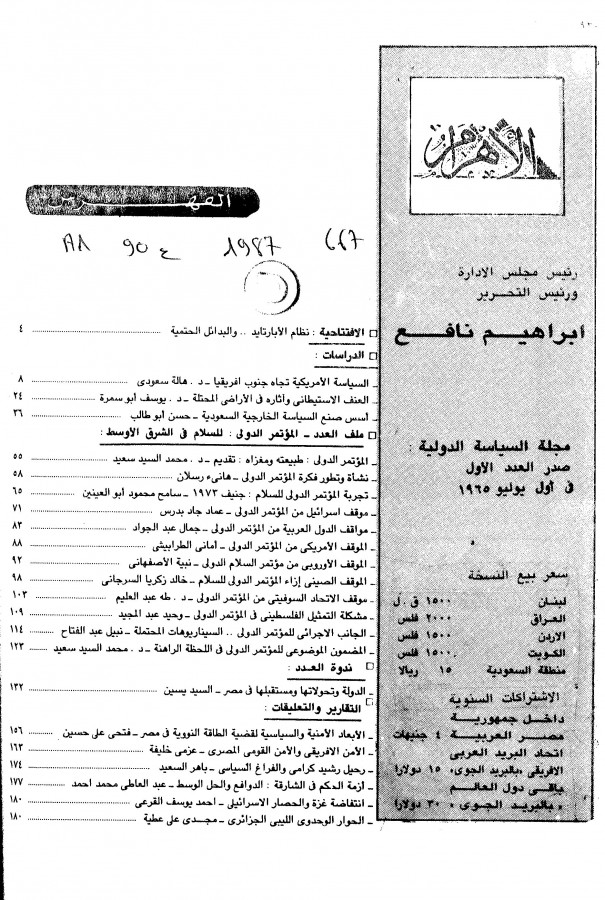 ٩٢٠
الأهرام
رئيس مجلس الادارة
ورئيس التحرير
ابراهيم نافع
مجلة السياسة الدولية :
صدر العدد الأول
في أول يوليو ١٩٦٥
سعر بيع النسخة
لبنان ١٥٠٠ ق . ل
العراق ٢٠٠٠ فلس
الاردن ١٥٠٠ فلس
الكويت ١٥٠٠ فلس
منطقة السعودية ١٥ ريالا
الإشتراكات السنوية
داخل جمهورية
مصر العربية ٤ جنيهات
اتحاد البريد العربى
الافريقى «بالبريد الجوى» ١٥ دولارا
باقى دول العالم
«بالبريد الجوى» ٣٠ دولارا
الفهرس
A1 90 ع 1987 667
□ الافتتاحية : نظام الأبارتايد .. والبدائل الحتمية ٤
□ الدراسات :
ـ السياسة الأمريكية تجاه جنوب افريقيا ـ د . هالة سعودى ٨
ـ العنف الاستيطانى وآثاره فى الأراضى المحتلة ـ د . يوسف أبو سمرة ٢٤
ـ أسس صنع السياسة الخارجية السعودية ـ حسن أبو طالب ٣٦
□ ملف العدد ـ المؤتمر الدولى : للسلام فى الشرق الأوسط :
ـ المؤتمر الدولى : طبيعته ومغزاه : تقديم ـ د . محمد السيد سعيد ٥٥
ـ نشأة وتطور فكرة المؤتمر الدولى ـ هانىء رسلان ٥٨
ـ تجربة المؤتمر الدولى للسلام : جنيف ١٩٧٣ ـ سامح محمود أبو العينين ٦٥
ـ موقف اسرائيل من المؤتمر الدولى ـ عماد جاد بدرس ٧١
ـ مواقف الدول العربية من المؤتمر الدولى ـ جمال عبد الجواد ٨٣
ـ الموقف الأمريكى من المؤتمر الدولى ـ أمانى الطرابيشى ٨٨
ـ الموقف الأوروبى من مؤتمر السلام الدولى ـ نبية الأصفهانى ٩٢
ـ الموقف الصينى إزاء المؤتمر الدولى للسلام ـ خالد زكريا السرجانى ٩٨
ـ موقف الاتحاد السوفيتى من المؤتمر الدولى ـ د . طه عبد العليم ١٠٣
ـ مشكلة التمثيل الفلسطينى فى المؤتمر الدولى ـ وحيد عبد المجيد ١٠٩
ـ الجانب الاجرائى للمؤتمر الدولى .. السيناريوهات المحتملة ـ نبيل عبد الفتاح ١١٤
ـ المضمون الموضوعى للمؤتمر الدولى فى اللحظة الراهنة ـ د . محمد السيد سعيد ١٢٣
□ ندوة العدد :
ـ الدولة وتحولاتها ومستقبلها فى مصر ـ السيد يسين ١٣٢
□ التقارير والتعليقات :
ـ الأبعاد الأمنية والسياسية لقضية الطاقة النووية فى مصر ـ فتحى على حسين ١٥٦
ـ الأمن الافريقى والأمن القومى المصرى ـ عزمى خليفة ١٦٣
ـ رحيل رشيد كرامى والفراغ السياسى ـ باهر السعيد ١٧٤
ـ أزمة الحكم فى الشارقة : الدوافع والحل الوسط ـ عبد العاطى محمد احمد ١٧٧
ـ انتفاضة غزة والحصار الاسرائيلى ـ احمد يوسف القرعى ١٨٠
ـ الحوار الوحدوى الليبى الجزائرى ـ مجدى على عطية ١٨٠